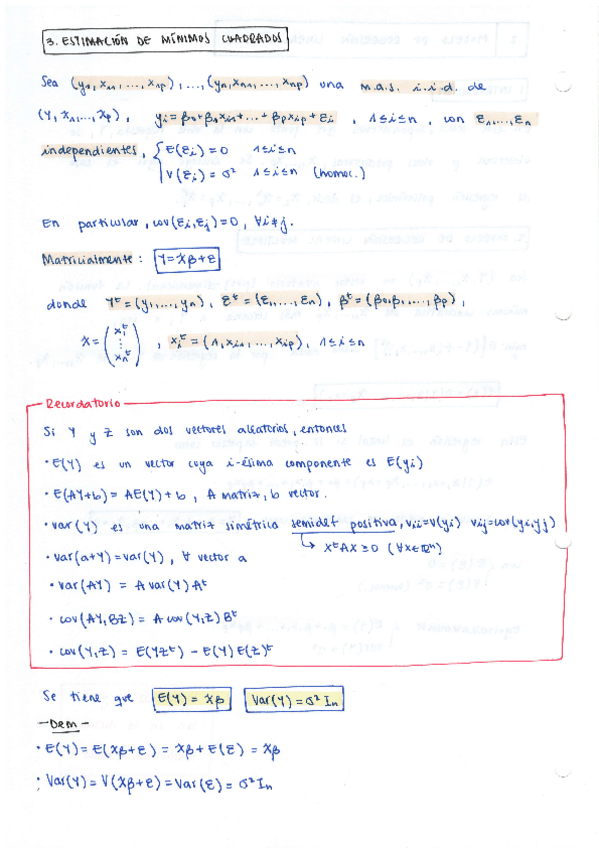 3. ESTIMACIÓN DE MÍNIMOS CUADRADOS
Sea (y₁, x₁₁, ..., x₁ₚ), ..., (yₙ, xₙ₁, ..., xₙₚ) una m.a.s. i.i.d. de
(Y, X₁, ..., Xₚ), yᵢ = β₀ + β₁xᵢ₁ + ... + βₚxᵢₚ + εᵢ , 1≤i≤n , con ε₁, ..., εₙ
independientes, { E(εᵢ) = 0 1≤i≤n
V(εᵢ) = σ² 1≤i≤n (homoc.)
En particular, cov(εᵢ, εⱼ) = 0, ∀i≠j.
Matricialmente: Y = Xβ + ε
donde Yᵗ = (y₁, ..., yₙ), εᵗ = (ε₁, ..., εₙ), βᵗ = (β₀, β₁, ..., βₚ),
X = (x₁ᵗ ⋮ xₙᵗ) , xᵢᵗ = (1, xᵢ₁, ..., xᵢₚ), 1≤i≤n
Recordatorio
Si Y y Z son dos vectores aleatorios, entonces
• E(Y) es un vector cuya i-ésima componente es E(yᵢ)
• E(AY+b) = AE(Y)+b, A matriz, b vector.
• var(Y) es una matriz simétrica semidef positiva, vᵢᵢ=V(yᵢ) vᵢⱼ=cov(yᵢ,yⱼ)
↳ xᵗAx ≥ 0 (∀x∈ℝⁿ)
• var(a+Y) = var(Y), ∀ vector a
• var(AY) = A var(Y) Aᵗ
• cov(AY, BZ) = A cov(Y,Z) Bᵗ
• cov(Y,Z) = E(YZᵗ) − E(Y)E(Z)ᵗ
Se tiene que E(Y) = Xβ Var(Y) = σ² Iₙ
—Dem—
• E(Y) = E(Xβ+ε) = Xβ + E(ε) = Xβ
• Var(Y) = V(Xβ+ε) = Var(ε) = σ² Iₙ